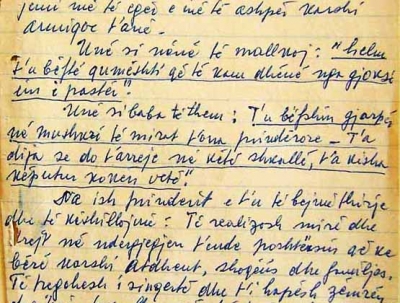 jemi më të egër e më të ashpër karshi
armiqve t'anë.
Unë si nënë të mallkoj: "helm
t'u bëftë qumështi që të kam dhënë nga gjoksi
im i pastër".
Unë si baba të them: T'u bëfshin gjarpër
në mushkri të mirat t'ona prindërore – T'a
dija se do t'arreje në këtë shkallë, t'a kisha
këputur kokën vetë".
Na ish prindërit e t'u bëjmë thirrje
dhe të këshillojmë: Të realizosh mirë dhe
drejt në ndërgjegjen t'ënde poshtërsinë që ke
bërë karshi atdheut, shoqëris dhe familjes.
Të pegohesh i singertë dhe t'i hapësh zemrën